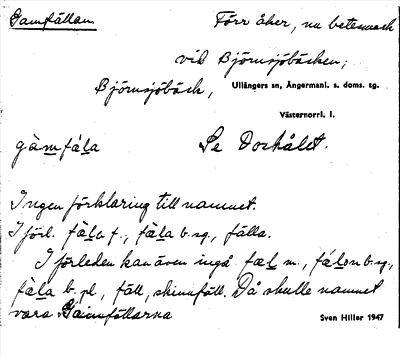 Gamfällan Förr åker, nu betesmark
vid Björnsjöbäcken;
Björnsjöbäck, Ullångers sn, Ångermanl. s. doms. tg.
Västernorrl. l.
gàmfä́la Se Dockålet.
Ingen förklaring till namnet.
I förl. fä̀la f., fä̀la b. sg., fälla.
I förleden kan även ingå fæl m., fä́len b. sg.,
fä̀la b. pl., fäll, skinnfäll. Då skulle namnet
vara Gamfällarna Sven Hiller 1947